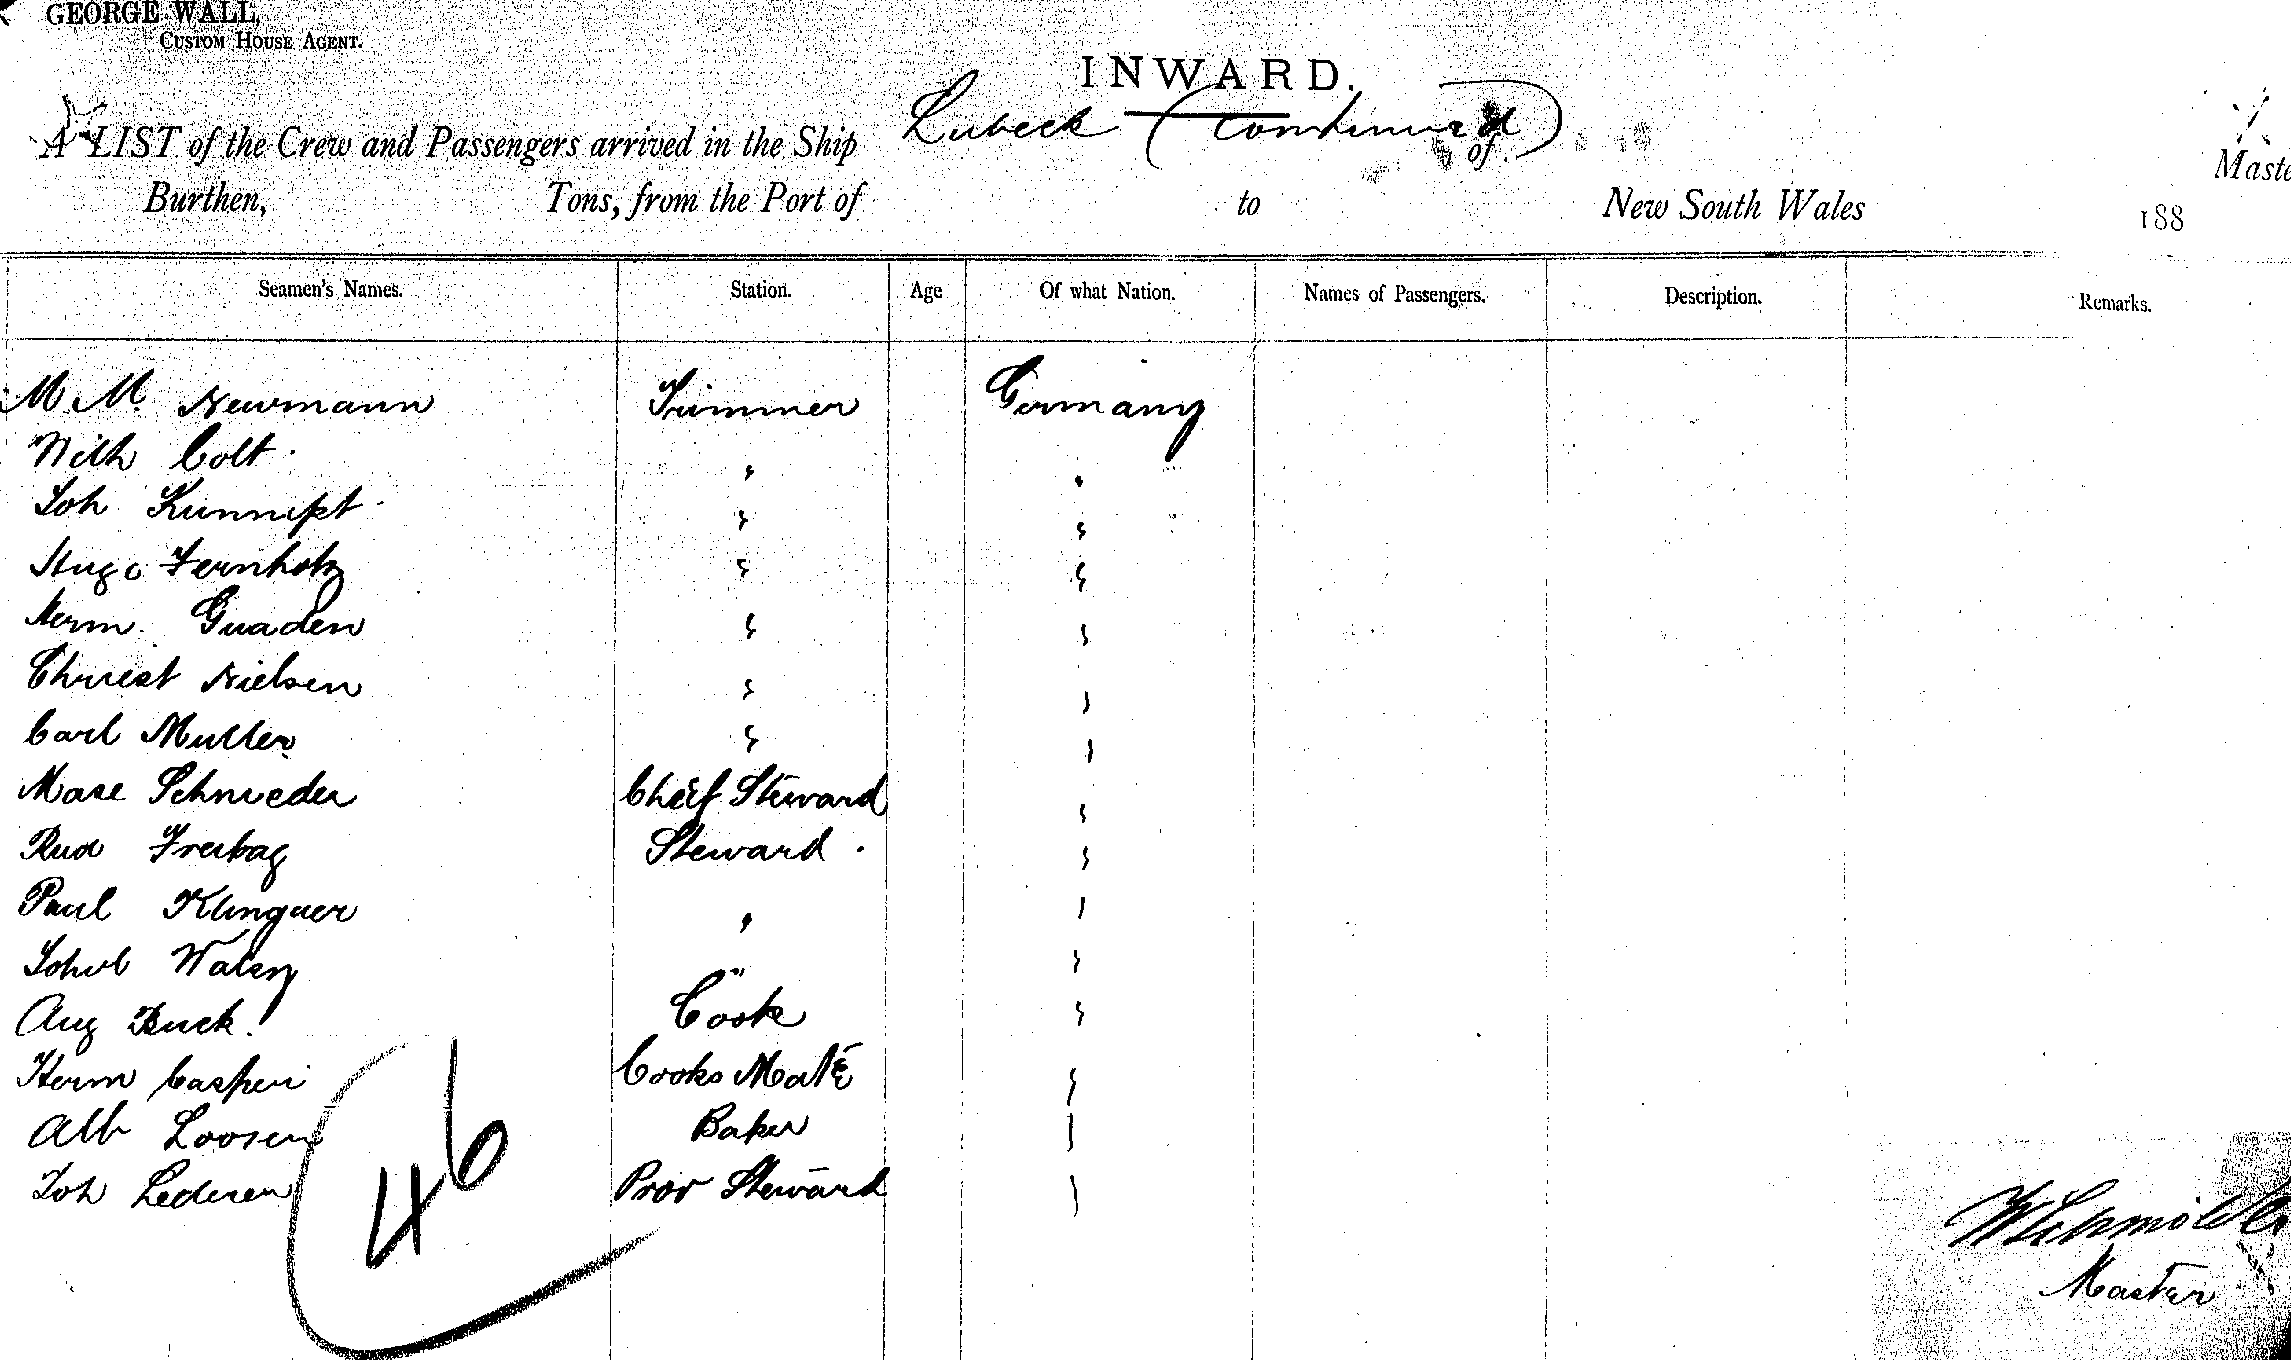 GEORGE WALL,
CUSTOM HOUSE AGENT.
INWARD.
A LIST of the Crew and Passengers arrived in the Ship Lubeck (continued) of Maste
Burthen, Tons, from the Port of to New South Wales 188
Seamen's Names. Station. Age Of what Nation. Names of Passengers. Description. Remarks.
M M. Newmann Trimmer Germany
Wilh Colt " "
Joh " "
Hugo Fernholz " "
Herm. Guaden " "
Christ Nielsen " "
Carl Muller " "
Schnieder Chief Steward "
Rud Freitag Steward "
Paul Klinguer " "
" "
Aug Buck. Cook "
Herm Casperi Cooks Mate "
Alb Loosen Baker "
Joh Lederer Prov Steward "
46
Master